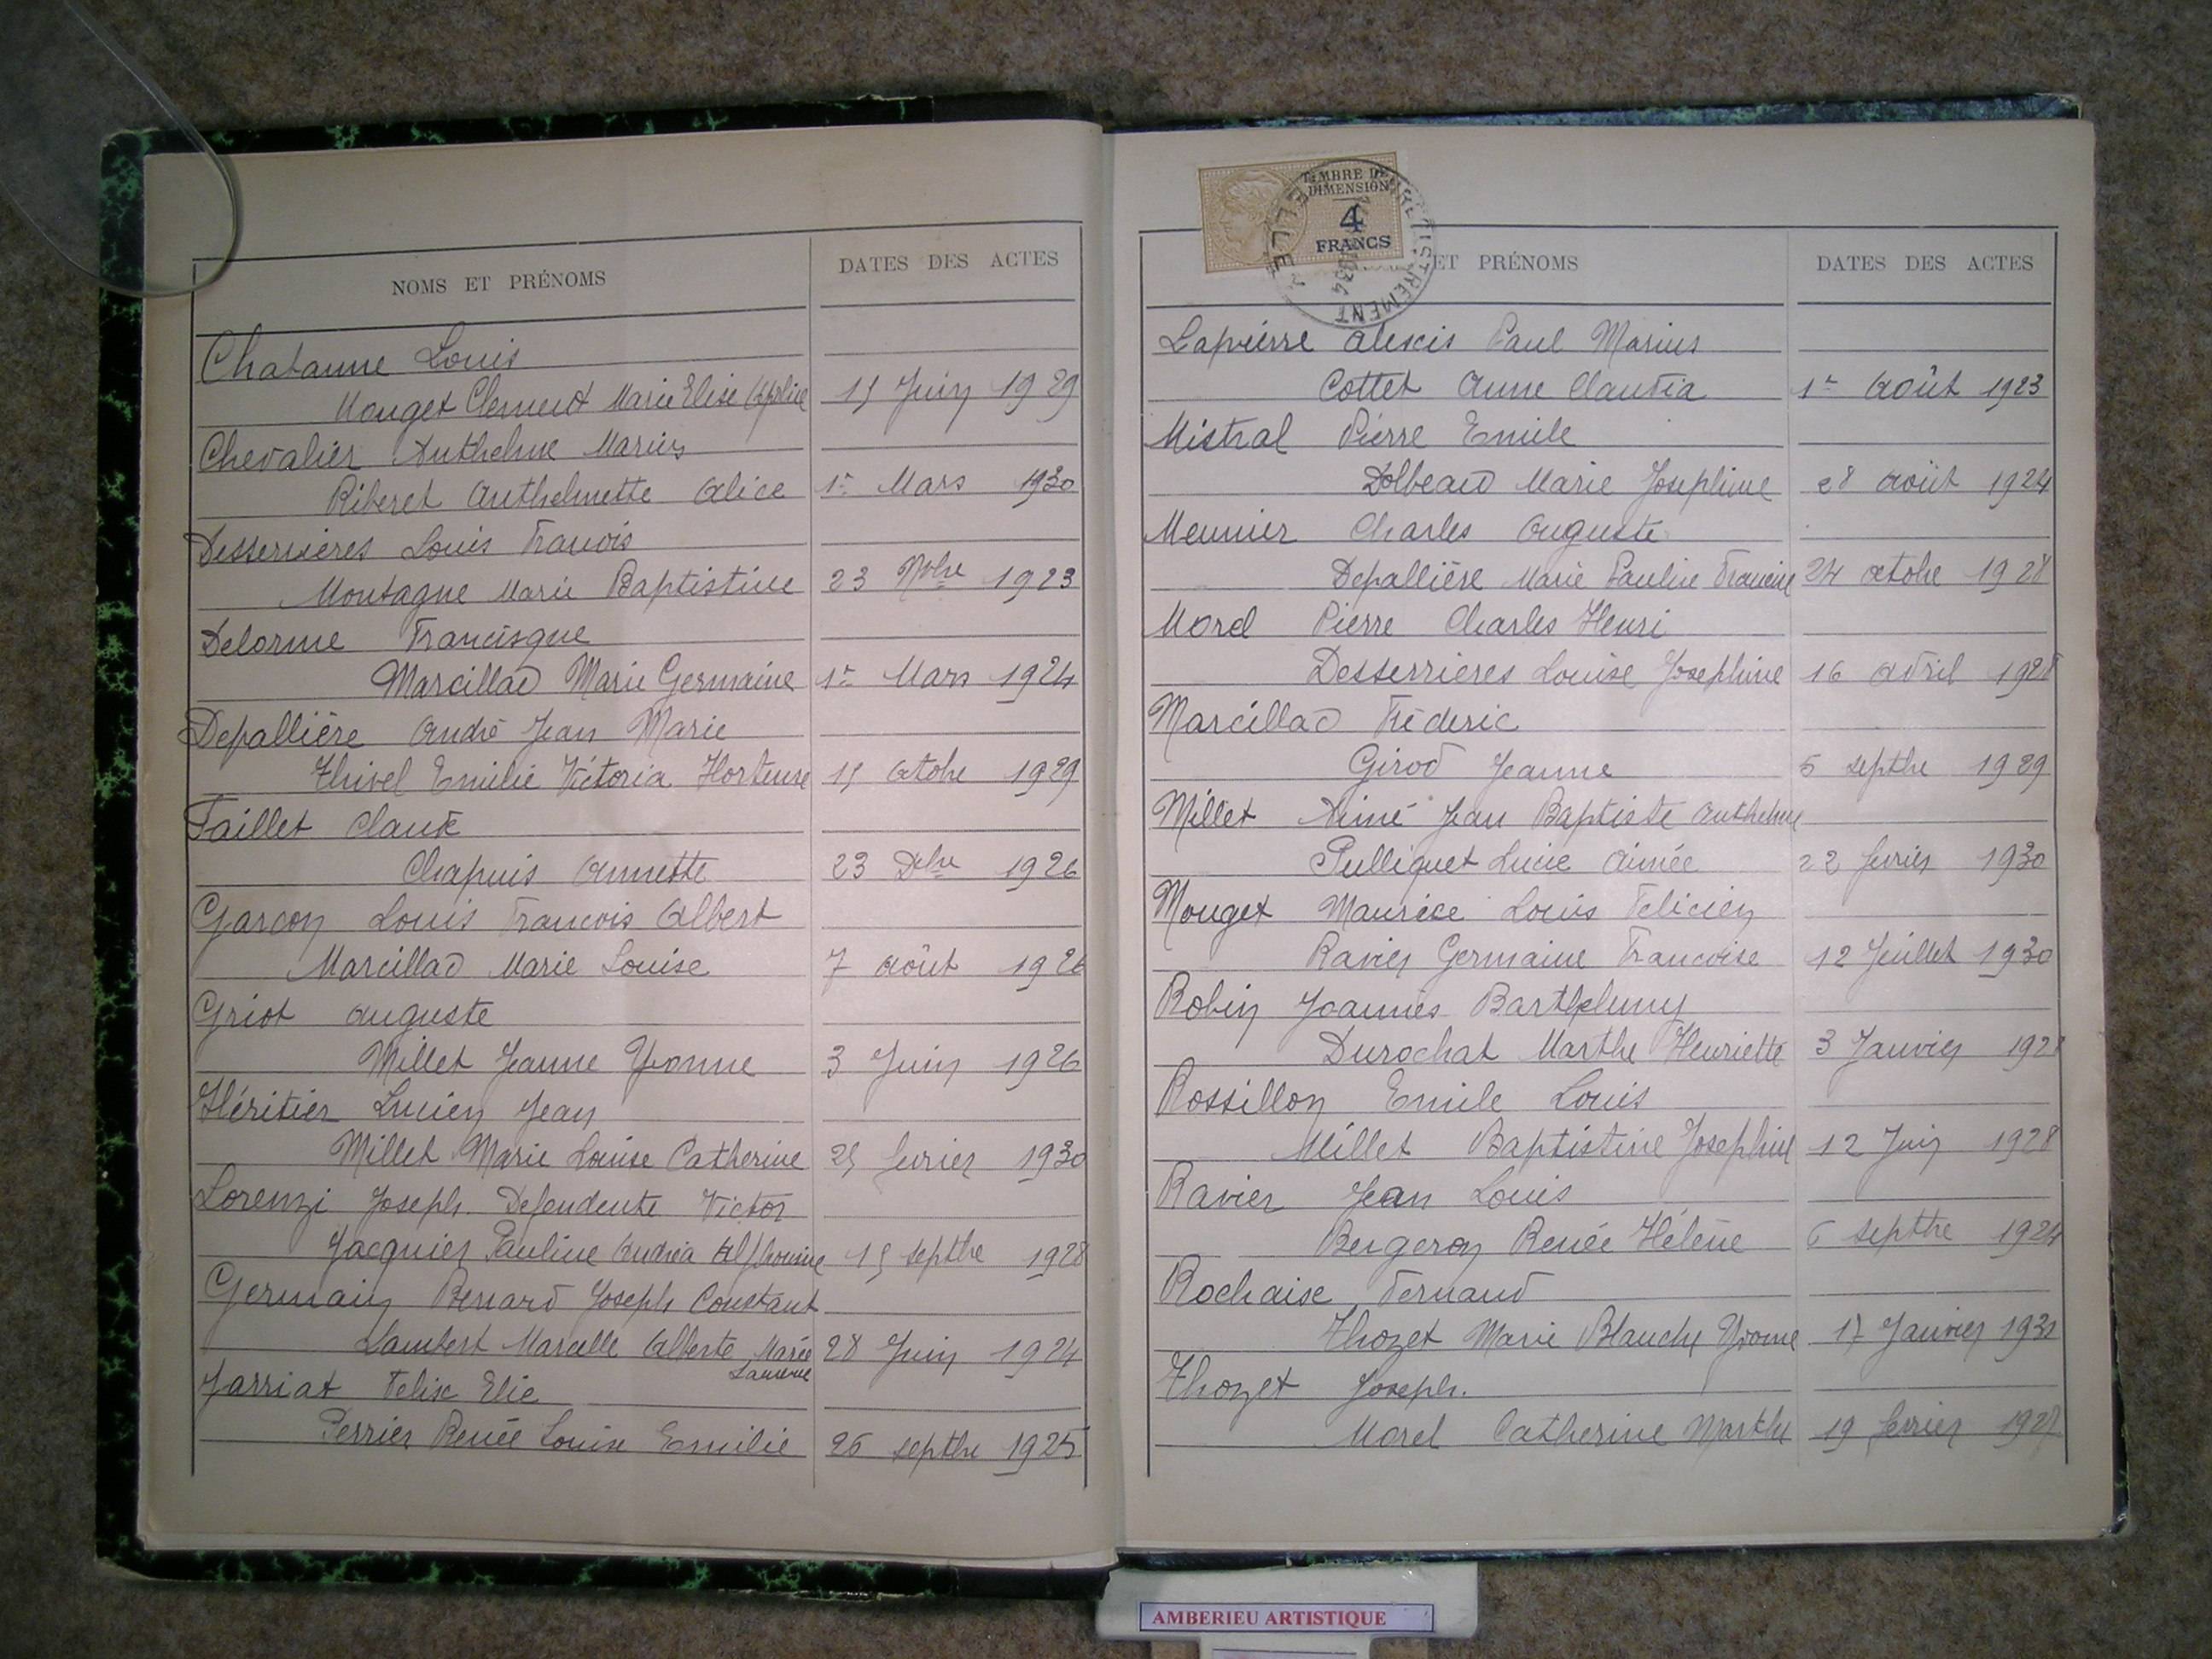 NOMS ET PRÉNOMS
DATES DES ACTES
Chatanne Louis
Mouget Clement Marie Elise 15 Juin 1929
Chevalier Anthelme Marius
Riberet Anthelmette Alice 1er Mars 1930
Desserrieres Louis Francois
Montagne Marie Baptistine 23 Nbre 1923
Delorme Francisque
Marcillad Marie Germaine 1er Mars 1924
Depallière André Jean Marie
Thivel Emilie Victoria Hortense 15 octobre 1929
Faillet Claude
Chapuis Annette 23 Dbre 1926
Garcon Louis Francois Albert
Marcillad Marie Louise 7 août 1926
Griot Auguste
Millet Jeanne Yvonne 3 Juin 1926
Héritier Lucien Jean
Millet Marie Louise Catherine 25 fevrier 1930
Lorenzi Joseph Defendente Victor
Jacquier Pauline Andréa Alphonsine 15 septbre 1928
Germain Benard Joseph Constant
Lambert Marcelle Alberte Marie 28 Juin 1924
Jarriat Felix Elie
Perrier Renée Louise Emilie 26 septbre 1925
TIMBRE DE
DIMENSION
4
FRANCS
ET PRÉNOMS
DATES DES ACTES
Lapierre Alexis Paul Marius
Cottet Anne Claudia 1er Août 1923
Mistral Pierre Emile
Dolbeau Marie Josephine 28 août 1924
Meunier Charles Auguste
Depallière Marie Pauline Francine 24 octobre 1928
Morel Pierre Charles Henri
Desserrieres Louise Josephine 16 avril 1928
Marcillad Fréderic
Girod Jeanne 5 septbre 1929
Millet Aimé Jean Baptiste Anthelme
Pulliquet Lucie Aimée 22 fevrier 1930
Mouget Maurice Louis Felicien
Ravier Germaine Francoise 12 Juillet 1930
Robin Joannès Barthelemy
Durochat Marthe Henriette 3 Janvier
Rossillon Emile Louis
Millet Baptistine Josephine 12 Juin 1928
Ravier Jean Louis
Bergeron Renée Hélène 6 septbre 1924
Rochaise Fernand
Thozet Marie Blanche Yvonne 17 Janvier
Thozet Joseph.
Morel Catherine Marthe 19 fevrier
AMBERIEU ARTISTIQUE